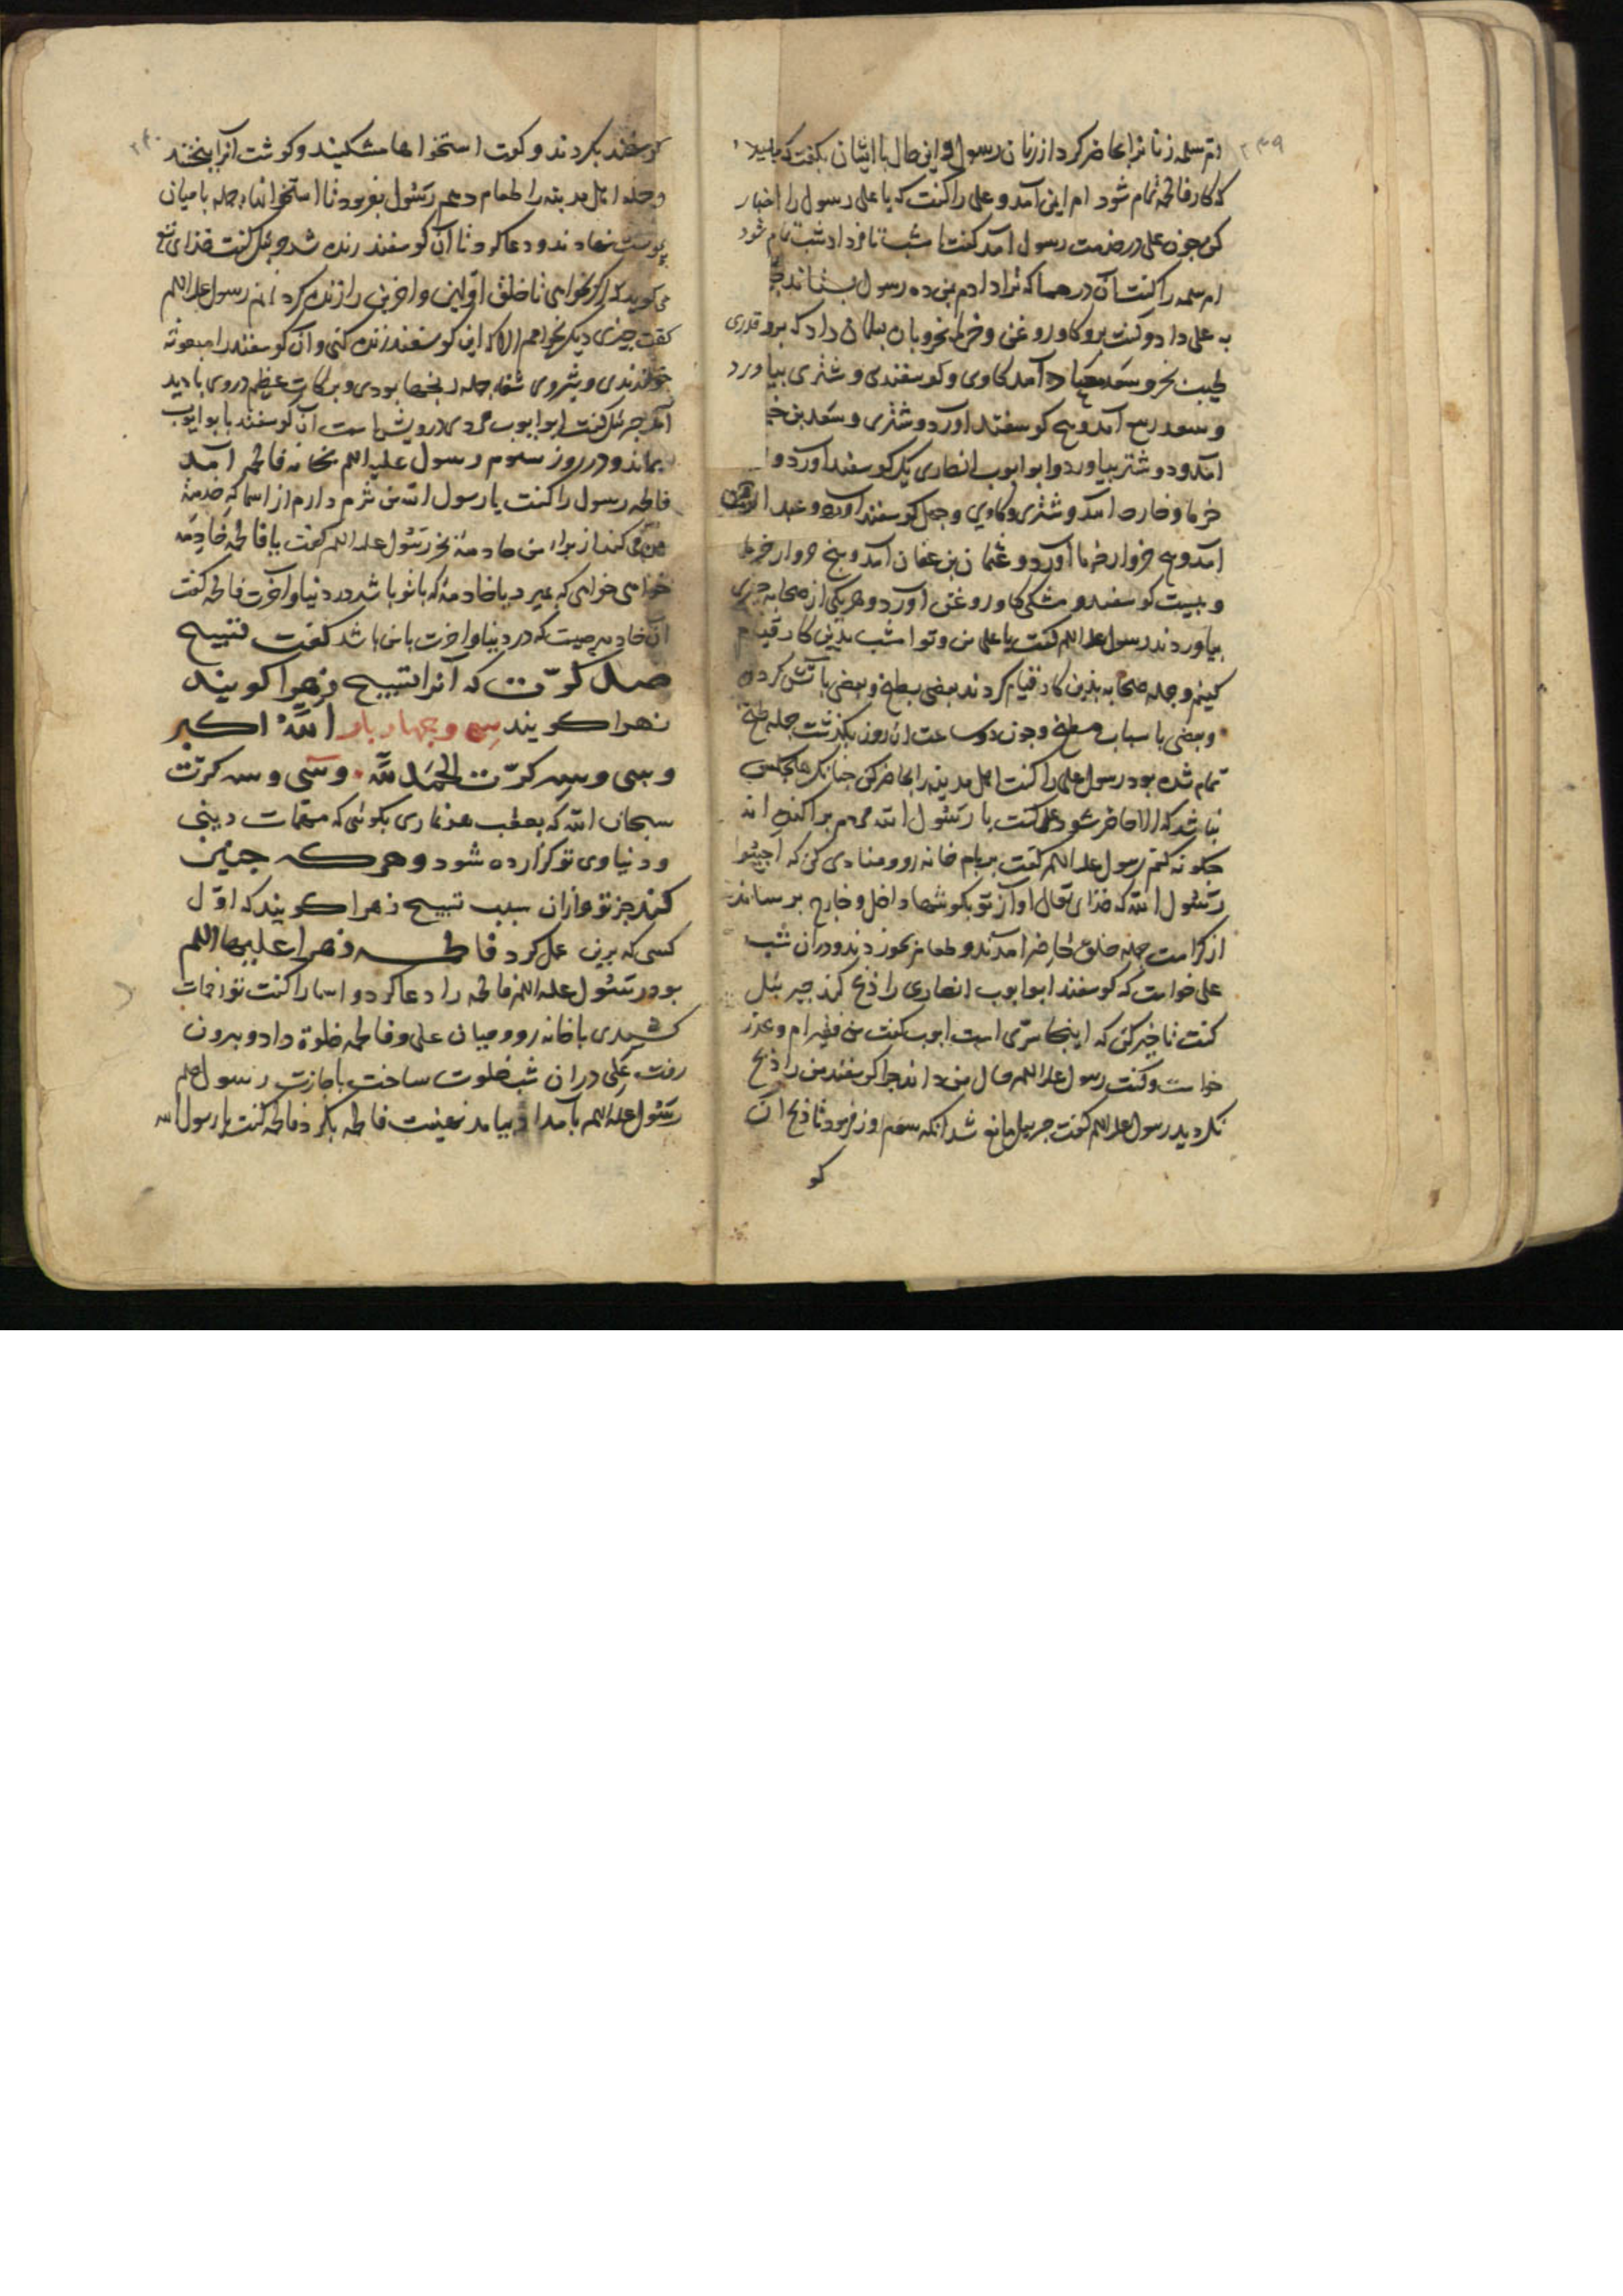 ۲۳۹
ام سلمه زنانرا حاضر کرد از زنان رسول و این حال با ایشان بکفت که
که کار فاطمه تمام شود ام ایمن آمد و علی را کفت که یا علی رسول را اخبار
کن چون علی در خدمت رسول آمد کفت امشب تا فردا شب تمام شود
ام سلمه را کفت آن درمها که ترا دادم بمن ده رسول بستاند
به علی داد و کفت برو کاو روغن و خرما بخر و بان سلمان داد که برو قدری
طیب بخر و سعد آمد کاوی و کوسفندی و شتری بیاورد
و سعد ربیع آمد و پنج کوسفند آورد و شتری و سعد بن
آمد و دو شتر بیاورد و ابو ایوب انصاری یک کوسفند آورد و
خرما و خارجه آمد و شتری و کاوی و چهل کوسفند آورد و عبد الرحمن
آمد و پنج خروار خرما آورد و عثمان بن عفان آمد و پنج خروار خرما
و بیست کوسفند و مشکی کاو روغن آورد و هر یکی از صحابه چیزی
بیاوردند رسول علیه السلم کفت یا علی من و تو امشب بدین کار قیام
کنیم و جمله صحابه بدین کار قیام کردند بعضی بطبخ و بعضی بآتش کردن
و بعضی باسباب مطبخ و چون دو ساعت از روز بکذشت جمله طبخ
تمام شده بود رسول علی را کفت اهل مدینه را حاضر کن چنانک هیچکس
نباشد که الا حاضر شود علی کفت یا رسول الله مردم پراکنده اند
چکونه کنم رسول علیه السلم کفت بر بام خانه رو و منادی کن که اجیبوا
رسول الله که خدای تعالی آواز تو بکوشها داخل و خارج برساند
از کرامت جمله خلق حاضر آمدند و طعام بخوردند و در آن شب
علی خواست که کوسفند ابو ایوب انصاری را ذبح کند جبرئیل
کفت تاخیر کن که اینجا سری است ابو ایوب کفت من فقیرام و عذر
خواست و کفت رسول علیه السلم حال من داند چرا کوسفند من را ذبح
نکردید رسول علیه السلم کفت جبریل مانع شد آنکه سیم روز فرمود تا ذبح آن
کو
۲۴۰
کوسفند بکردند و کفت استخوانها مشکنید و کوشت آنرا بپختند
و جمله اهل مدینه را طعام دهم رسول بفرمود تا استخوانها جمله بامیان
پوست نهادند و دعا کرد تا آن کوسفند زنده شد جبرئیل کفت خدای
می کوید که اکر خواهی تا خلق اولین و آخرین را زنده کردانم رسول علیه السلم
کفت چیزی دیکر نخواهم الا که این کوسفند زنده کنی و آن کوسفند را مبعوثه
خواندندی و شیر وی شفاء جمله رنجها بودی و برکات عظیم در وی بادید
آمد جبرئیل کفت ابو ایوب مردی درویش است آن کوسفند بابو ایوب
بماند و در روز سیوم رسول علیه السلم بخانه فاطمه آمد
فاطمه رسول را کفت یا رسول الله من شرم دارم از اسما که خدمت
من می کند از برای من خادمه بخر رسول علیه السلم کفت یا فاطمه خادمه
خواهی خواهی که بمیرد یا خادمه که با تو باشد در دنیا و آخرت فاطمه کفت
آن خادمه چیست که در دنیا و آخرت با من باشد کفت تسبیح
صد کرّت که آنرا تسبیح زهرا کویند
زهرا کویند سی و چهار بار الله اکبر
و سی و سه کرّت الحمد لله و سی و سه کرّت
سبحان الله که بعقب هر نماری بکوئی که مهمّات دینی
و دنیاوی تو کزارده شود و هرکه چنین
کند جز تو و ازان سبب تسبیح زهرا کویند که اوّل
کسی که برین عمل کرد فاطمه زهرا علیها السلم
بود رسول علیه السلم فاطمه را دعا کرد و اسما را کفت تو زحمات
کشیدی با خانه رو و میان علی و فاطمه خلوة داد و بیرون
رفت علی دران شب خلوت ساخت باجازت رسول صلعم
رسول علیه السلم بامداد بیامد تهنیت فاطمه بکرد فاطمه کفت یا رسول الله